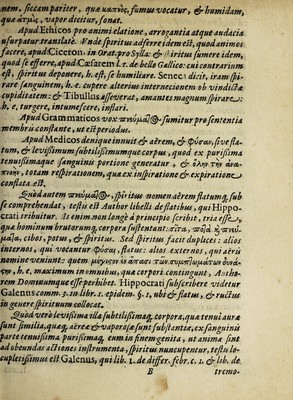 nem, siccam pariter, quæ καπνὸς, fumus vocatur, & humidam,
quæ ἀτμὸς, vapor dicitur, sonat.
Apud Ethicos pro animi elatione, arrogantia atque audacia
usurpatur translatè. Vnde spiritus adferre idem est, quod animos
facere, apud Ciceron. in Orat. pro Sylla: & spiritus sumere idem,
quod se efferre, apud Cæsarem l. 1. de bello Gallico: cui contrarium
est, spiritus deponere, h. est, se humiliare. Senec: dicit, iram spi-
rare sanguinem, h. e. cupere alterius internecionem ob vindictæ
cupiditatem: & Tibullus asseverat, amantes magnum spirare:
h. e. turgere, intumescere, inflari.
Apud Grammaticos sumitur pro sententia
membris constante, ut est periodus.
Apud Medicos denique innuit & aërem, & φύσαν, sive fla-
tum, & levissimum subtilissimumque corpus, quod ex purissima
tenuissimaque sanguinis portione generatur, & ὅλην τὴν ἀνα-
πνοὴν, totam respirationem, quæ ex inspiratione & expiratione
conflata est.
Quòd autem spiritus nomen aërem flatumque, sub
se comprehendat, testis est Author libelli de flatibus, qui Hippo-
crati tribuitur. Is enim non longè à principio scribit, tria esse,
quæ hominum brutorumque corpora sustentant: σῖτα, ποτὰ
cibos, potus, & spiritus. Sed spiritus facit duplices: alios
internos, qui vocantur φῦσαι, flatus: alios externos, qui aëris
nomine veniunt: quem
h. e. maximum in omnibus, quæ corpori contingunt, Autho-
rem Dominumque esse perhibet. Hippocrati subscribere videtur
Galenus comm. 3. in libr. 1. epidem. §. 1, ubi & flatus, & ructus
in genere spirituum collocat.
Quòd verò levissima illa subtilissimaque corpora, quæ tenui auræ
sunt similia, quæque aëreæ & vaporosæ sunt substantiæ, ex sanguinis
parte tenuissima purissimaque, cum in finem genita, ut anima sint
ad obeundas actiones instrumenta, spiritus nuncupentur, testis lo-
cupletissimus est Galenus, qui lib. 1. de differ. febr. c. 1. & lib. de
B tremo-